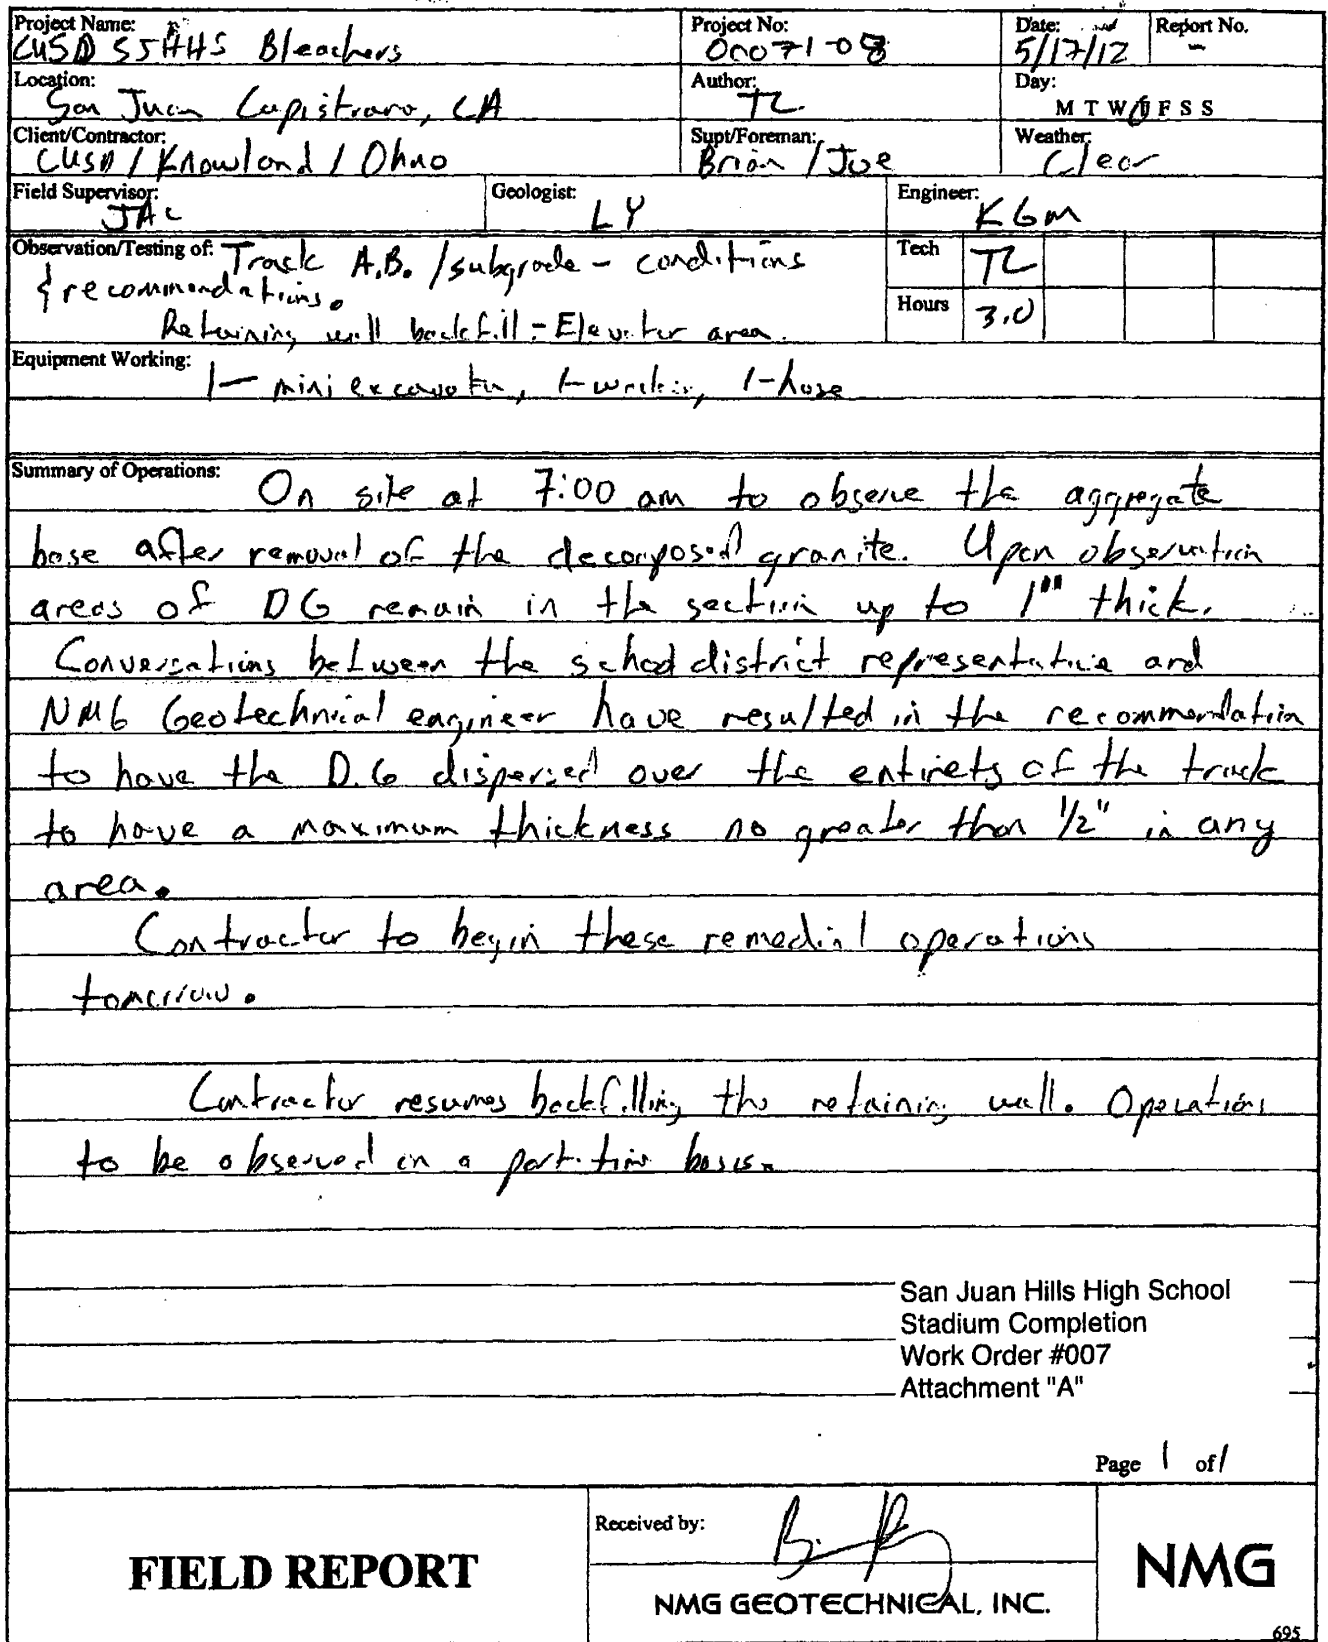 Project Name: CUSD SJHHS Bleachers
Project No: 00071-08
Date: 5/17/12
Report No. -
Location: San Juan Capistrano, CA
Author: TL
Day: M T W T F S S
Client/Contractor: CUSD / Knowland / Ohno
Supt/Foreman: Brian / Joe
Weather: Clear
Field Supervisor: JAC
Geologist: LY
Engineer: KGM
Observation/Testing of: Track A.B. / subgrade - conditions
& recommendations.
Retaining wall backfill - Elevator area.
Tech TL
Hours 3.0
Equipment Working: 1- mini excavator, 1- , 1-hose
Summary of Operations: On site at 7:00 am to observe the aggregate
base after removal of the decomposed granite. Upon observation
areas of DG remain in the section up to 1" thick.
Conversations between the school district representative and
NMG Geotechnical engineer have resulted in the recommendation
to have the D.G dispersed over the entirety of the track
to have a maximum thickness no greater than 1/2" in any
area.
Contractor to begin these remedial operations
tomorrow.
Contractor resumes backfilling the retaining wall. Operations
to be observed on a part-time basis.
San Juan Hills High School
Stadium Completion
Work Order #007
Attachment "A"
Page 1 of 1
FIELD REPORT
Received by:
NMG GEOTECHNICAL, INC.
NMG
695